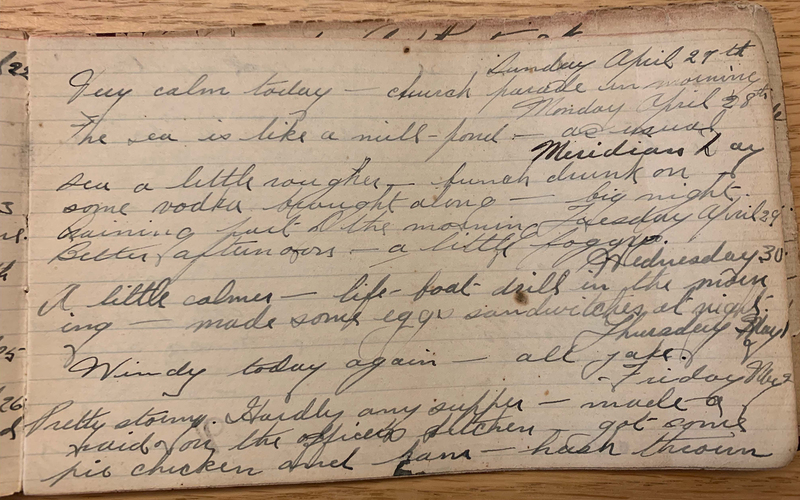 Sunday April 27th
Very calm today — church parade in morning
Monday April 28th
The sea is like a mill-pond — as usual
Meridian Day
sea a little rougher — bunch drunk on
some vodka brought along — big night.
Tuesday April 29
raining part of the morning
Better afternoon — a little foggy.
Wednesday 30
A little calmer — life-boat drill in the morn
ing — made some eggs sandwitches at night.
Thursday May 1
Windy today again — all jake.
Friday May 2
Pretty stormy. Hardly any supper — made a
raid on the officers kitchen — got some
pie chicken and ham — hash thrown